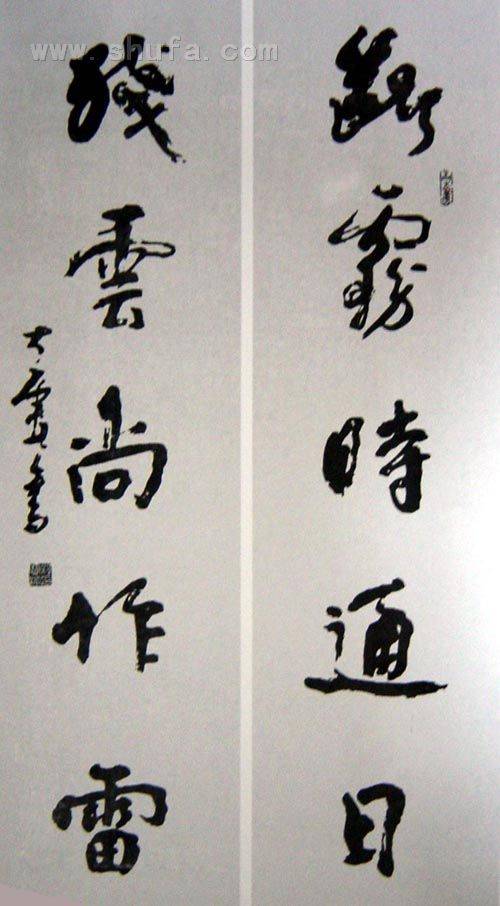 www.shufa.com
斷霧時通日
殘雲尚作雷